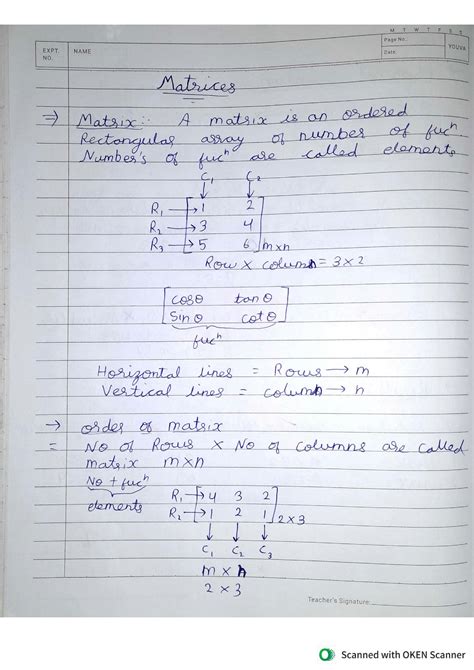 M T W T F S S
Page No.:
YOUVA
Date:
EXPT. NO.
NAME
Matrices
⇒ Matrix:- A matrix is an ordered
Rectangular array of number of fucⁿ
Number's of fucⁿ are called elements
C₁ C₂
R₁ → 1 2
R₂ → 3 4
R₃ → 5 6 m×n
Row × column = 3 × 2
cosθ tanθ
Sinθ cotθ
fucⁿ
Horizontal lines = Rows → m
Vertical lines = column → n
→ order of matrix
= No of Rows × No of columns are called
matrix m×n
No + fucⁿ
elements
R₁ → 4 3 2
R₂ → 1 2 1 2×3
C₁ C₂ C₃
m × n
2 × 3
Teacher's Signature:
Scanned with OKEN Scanner